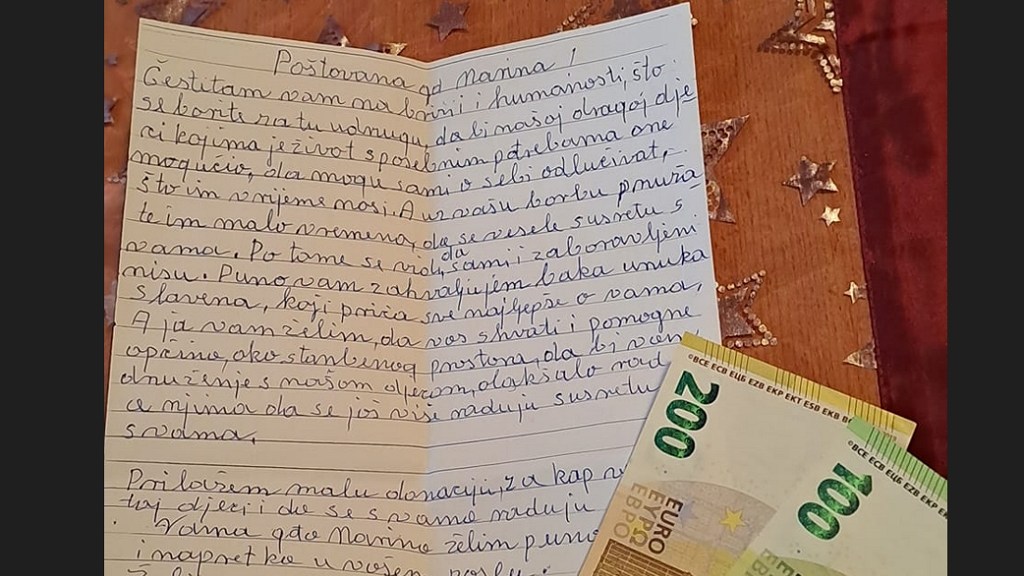 Poštovana gđ Marina!
Čestitam vam na borbi i humanosti, što
se borite za tu udrugu, da bi našoj dragoj dje
ci kojima je život s posebnim potrebama one
mogučio, da mogu sami o sebi odlučivat,
što im vrijeme nosi. A uz vašu borbu pruža
te im malo vremena, da se vesele susretu s
vama. Po tome se vidi, da sami i zaboravljeni
nisu. Puno vam zahvaljujem baka unuka
Slavena, koji priča sve najljepše o vama,
A ja vam želim, da vas shvati i pomogne
općina, oko stanbenog prostora, da bi vam
druženje s našom djecom, olakšalo rad
a njima da se još više raduju susretu
s vama.
Prilažem malu donaciju, za kap
toj djeci i da se s vama raduju
Vama gđo Marina želim puno
i napretka u vašem poslu.
©BCE ECB ЕЦБ EZB EKP EKT ESB EKB
200
EURO
ΕΥΡΩ
ЕВРО
©BCE ECB ЕЦБ EZB EKP EKT
100